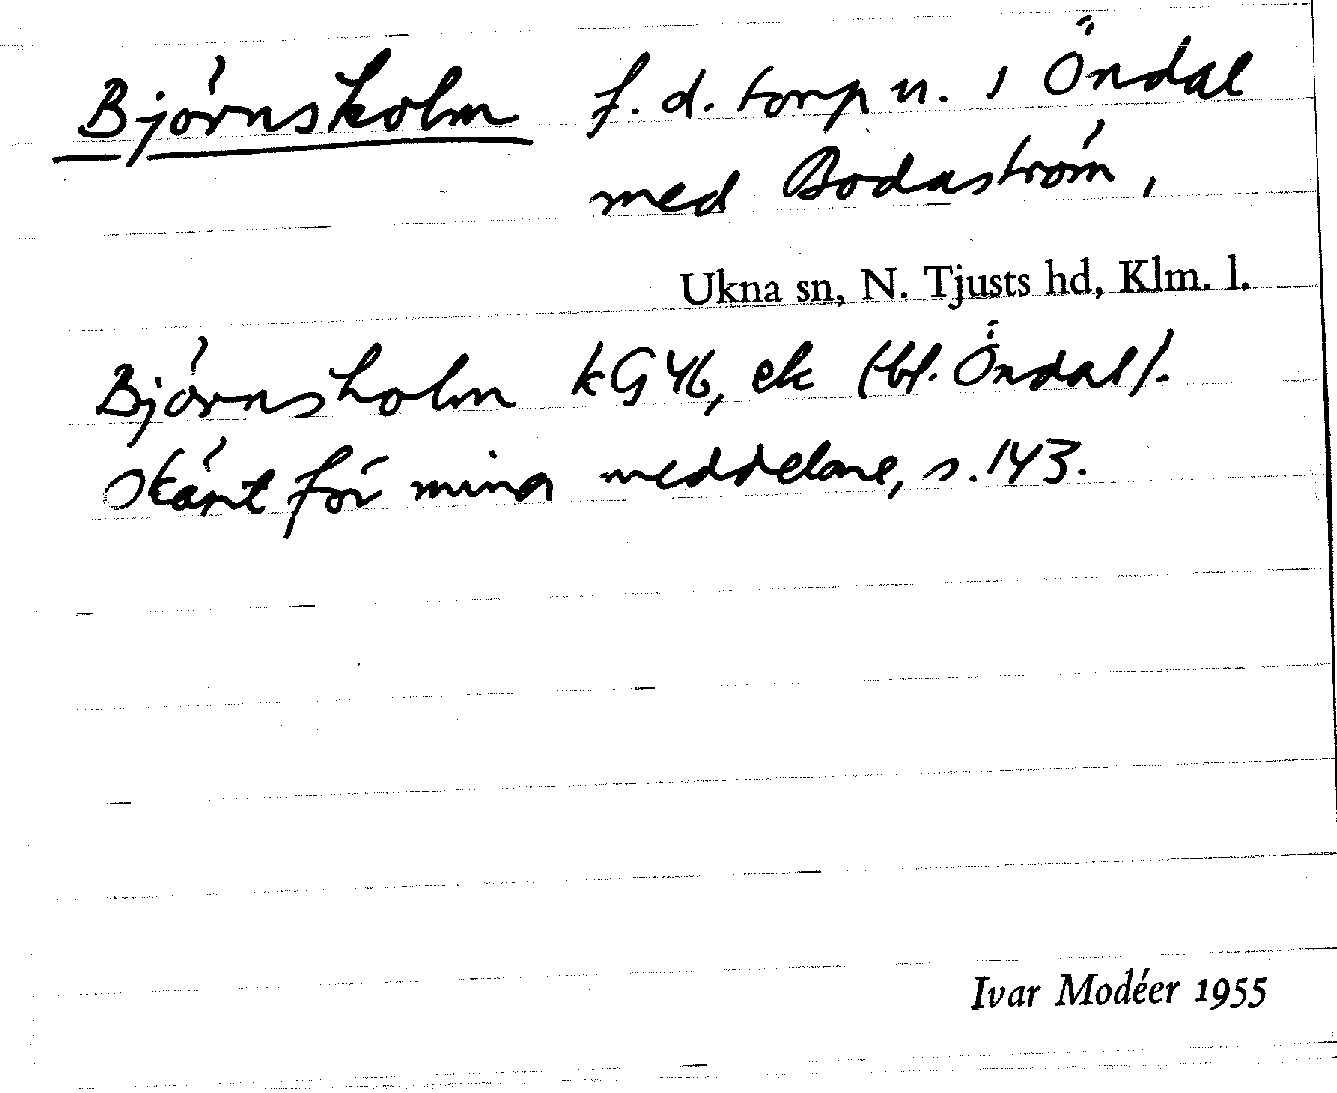 Björnsholm f.d. torp u. i Öndal
med Bodaström,
Ukna sn, N. Tjusts hd, Klm. l.
Björnsholm kG 46, ek (bl. Öndal).
Okänt för mina meddelare, s. 143.
Ivar Modéer 1955